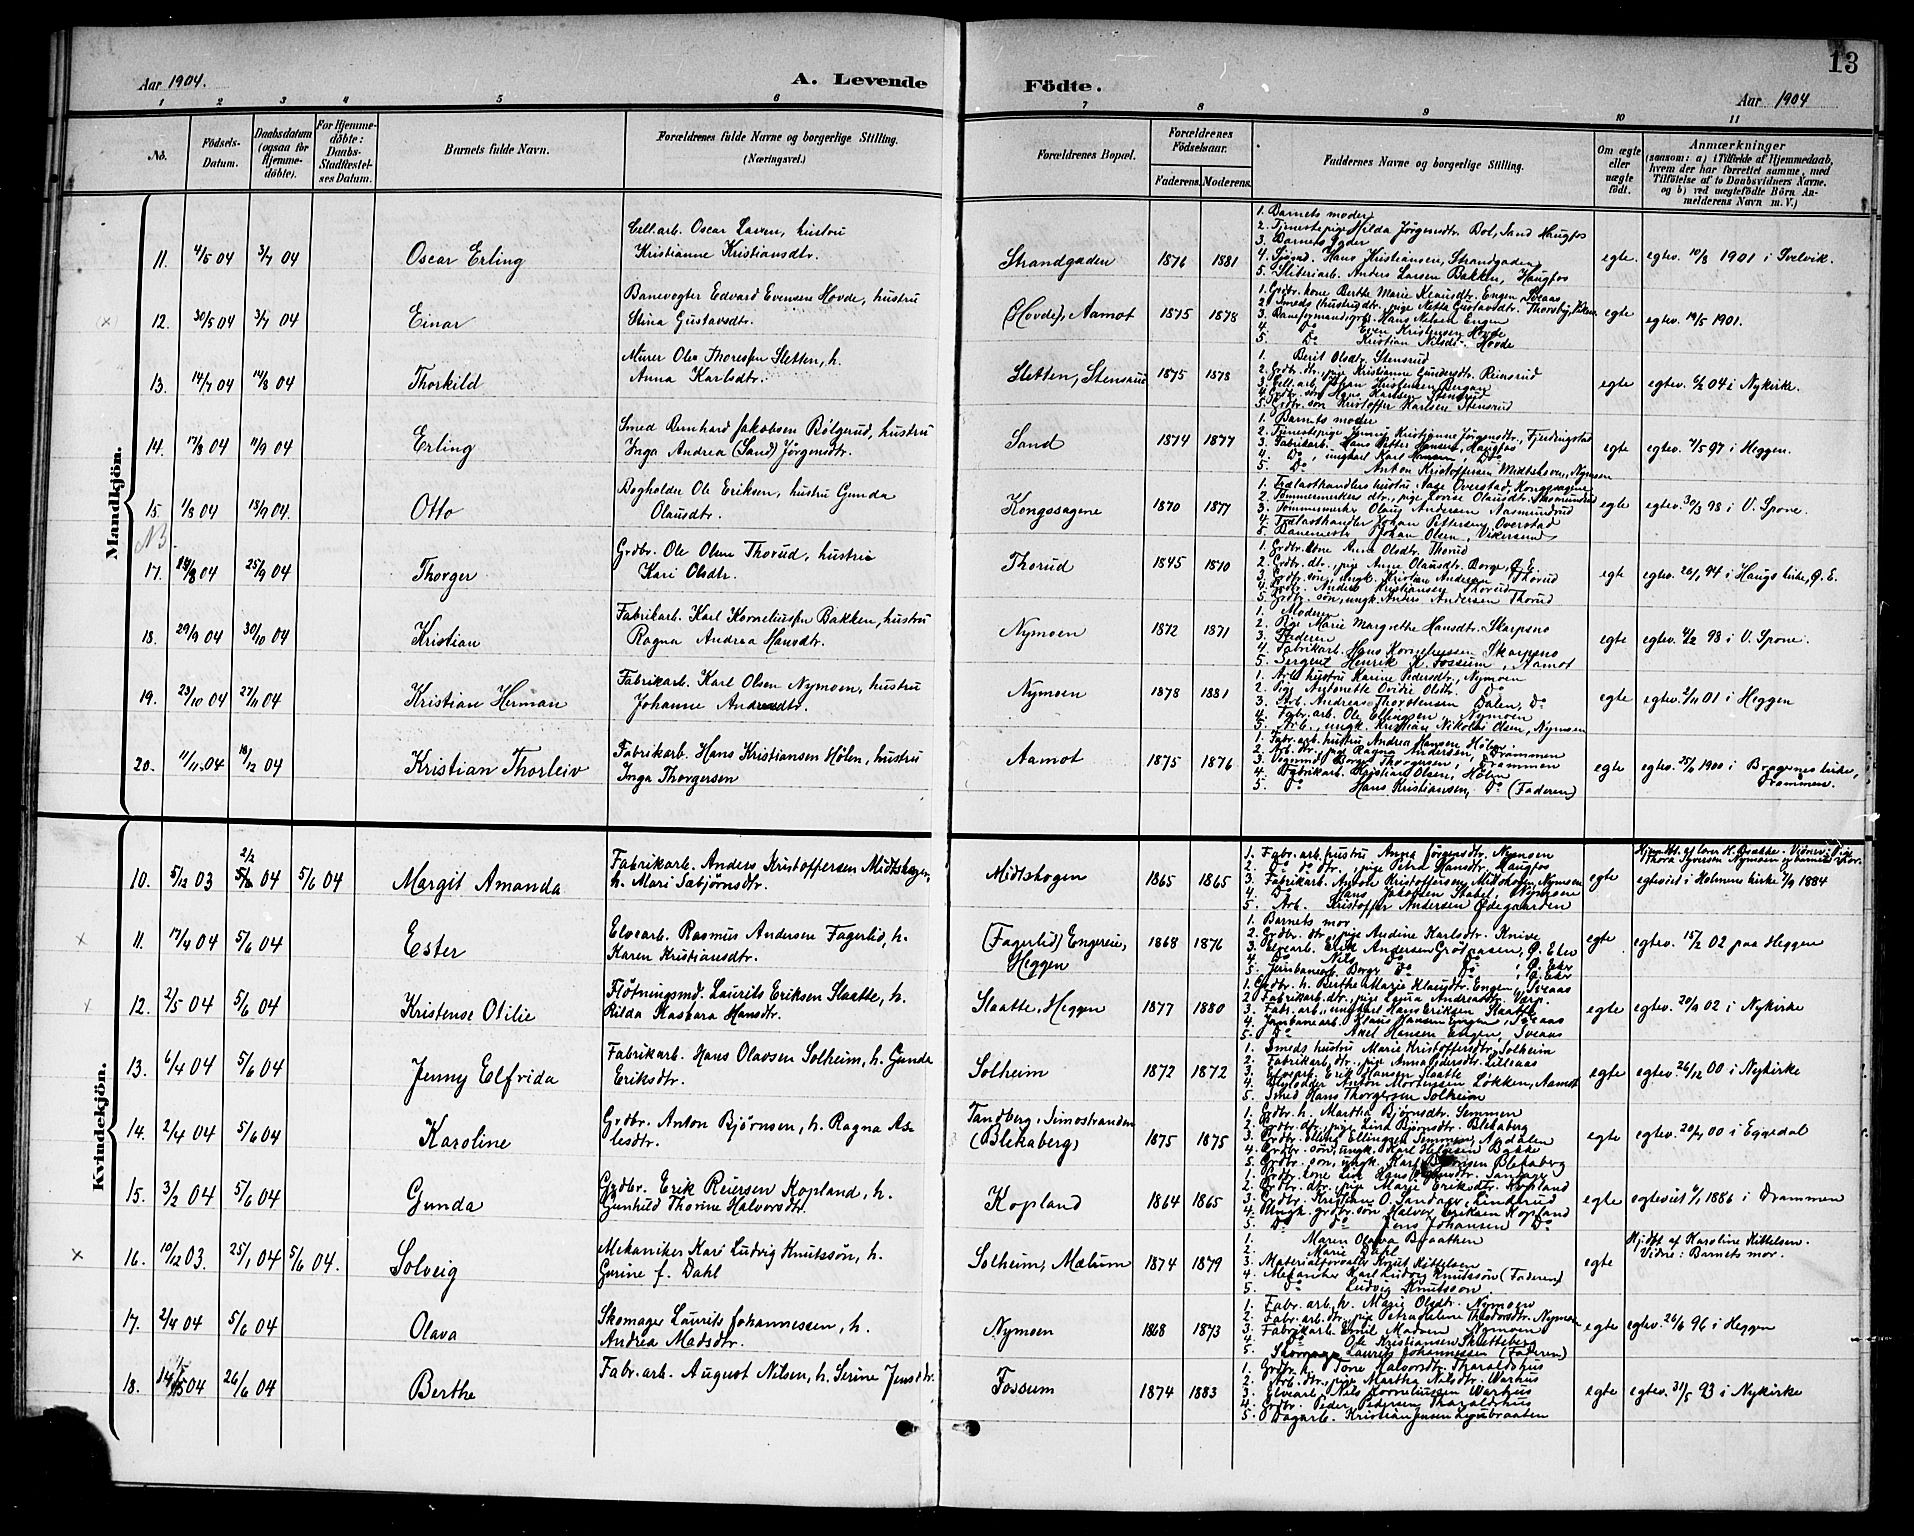 13
Aar 1904.
A. Levende
Födte.
Aar 1904
1 2 3 4 5 6 7 8 9 10 11
No.
Födsels-Datum.
Daabsdatum (ogsaa for Hjemme-döbte).
For Hjemme-döbte: Daabs-Stadfæstel-ses Datum.
Barnets fulde Navn.
Forældrenes fulde Navne og borgerlige Stilling. (Næringsvei.)
Forældrenes Bopæl.
Forældrenes Födselsaar.
Faderens. Moderens.
Faddernes Navne og borgerlige Stilling.
Om ægte eller uægte födt.
Anmærkninger
(saasom: a) i Tilfælde af Hjemmedaab, hvem der har forrettet samme, med Tilföielse af to Daabsvidners Navne. og b) ved uægtefödte Börn An-melderens Navn m. V.)
Mandkjön.
11. 4/5 04 3/7 04 Oscar Erling
Cell.arb. Oscar Larsen, hustru
Kristianne Kristiansdtr.
Strandgaden 1876 1881
1. Barnets moder
2. Tjenestepige Hilda Jörgensdtr. Bol, Sand Haugfos
3. Barnets fader
4. Hans Kristiansen, Strandgaden
5. Sliteriarb. Anders Larsen Bakken, Haugfos
egte egtev. 10/8 1901 i Svelvik.
(x) 12. 30/5 04 3/7 04 Einar
Banevogter Edvard Evensen Hovde, hustru
Stina Gustavsdtr.
(Hovde), Aamot 1875 1878
1. Grdbr. kone Berthe Marie Klausdtr. Engen Sveaas
3. Baneformand, grdb. Hans Nilsen Engen
4. Do Even Kristensen Hovde
5. Do Kristian Nilsdtr. Hovde
egte egtev. 19/5 1901.
13. 14/7 04 14/8 04 Thorkild
Murer Ole Thoresen Sletten, h.
Anna Karlsdtr.
Sletten, Stensrud 1875 1878
1. Berit Olsdtr. Stensrud
2. Grdbr. dtr., pige Kristianne Gundersdtr. Reinsrud
4. Grdbr. søn Hans Karlsen Stensrud
5. Grdbr. søn Kristoffer Karlsen Stensrud
egte egtev. 6/2 04 i Nykirke.
14. 17/8 04 11/9 04 Erling
Smed Bernhard Jakobsen Bölgerud, hustru
Inga Andrea (Sand) Jörgensdtr.
Sand 1874 1877
1. Barnets moder
2. Tjenestepige Jenny Kristianne Jörgensdtr., Fjerdingstad
3. Fabrikarb. Hans Petter Hansen, Haugfos
4. Do, ungkarl Karl Hansen, Do
5. Do Anton Kristoffersen Midtskoven, Nymoen
egte egtev. 7/5 97 i Heggen.
15. 1/8 04 18/9 04. Otto
Bogholder Ole Eriksen, hustru Gunda
Olausdtr.
Kongssagene 1870 1877
1. Trælasthandlers hustru Aase Overstad, Kongssagene
2. Tømmermerkers dtr., pige Lovise Olausdtr. Aasmundrud
3. Tømmermerker Olaus Andersen Aasmundrud
4. Trælasthandler Johan Pettersen, Overstad
5. Banemester Johan Olsen, Vikersund
egte egtev. 30/3 98 i V. Spone.
NB.
17. 14/8 04 25/9 04 Thorger
Grdbr. Ole Olsen Thorud, hustru
Kari Olsdtr.
Thorud 1845 1870
1. Grdbr. kone Anne Olsdtr. Thorud
2. Grdbr. dt., pige Anne Olausdtr. Borge, Ø. E.
3. Grdbr. søn, ungk. Kristian Andersen Thorud
4. Grdbr. Anders Kristiansen Thorud
5. Grdbr. søn, ungk. Anders Andersen Thorud
egte egtev. 26/1 94 i Haugs kirke, Ø. E.
18. 29/9 04 30/10 04 Kristian
Fabrikarb. Karl Korneliussen Bakken, hustru
Ragna Andrea Hansdtr.
Nymoen 1872 1871
1. Moderen
2. Pige Marie Margrethe Hansdtr. Skarpsno
3. Faderen
4. Fabrikarb. Hans Korneliussen Skarpsno
5. Sergent Henrik K. Fossum, Aamot
egte egtev. 6/2 98 i V. Spone.
19. 23/10 04 27/11 04 Kristian Herman
Fabrikarb. Karl Olsen Nymoen, hustru
Johanne Andreasdtr.
Nymoen 1878 1881
1. Arb. hustru Karine Pedersdtr., Nymoen
2. Pige Antonette Ovidie Olsdtr. Do
3. Arb. Andreas Thorstensen Dalen, Do
4. Fabr. arb. Ole Ellingsen, Nymoen
5. Arb., ungk. Kristian Nikolai Olsen, Nymoen
egte egtev. 2/11 01 i Heggen
20. 11/11 04 18/12 04 Kristian Thorleiv
Fabrikarb. Hans Kristiansen Hölen, hustru
Inga Thorgersen
Aamot 1875 1876
1. Fabr. arb. hustru Andrea Hansen Hölen
2. Arb. dtr., pige Ragna Andersen, Drammen
3. Börger Thorgersen, Drammen
4. Fabrikarb. Kristian Olsen, Hölen
5. Do Hans Kristiansen, Do (Faderen)
egte egtev. 25/6 1900 i Bragernes kirke,
Drammen.
Kvindekjön.
10. 5/12 03 2/2 04 5/6 04 Margit Amanda
Fabrikarb. Anders Kristoffersen Midtskogen,
h. Mari Sabjörnsdtr.
Midtskogen 1865 1865
1. Fabr. arb. hustru Anna Jørgensdtr. Nymoen
2. Do dtr., pige Petra Hansdtr. Haugfos
3. Fabrikarb. Anton Kristoffersen, Midtskoven, Nymoen
4. Do Hans Jakobsen Stabel, Nymoen
5. Arb. Kristoffer Andersen Ødegaarden
egte
Hjemdt. af Lars H. Braathe. Vidner: Pige
Thora Syversen Nymoen og barnets
egteviet i Holmens kirke 7/9 1884
x 11. 17/4 04 5/6 04 Ester
Elvearb. Rasmus Andersen Fagerlid, h.
Karen Kristiansdtr.
(Fagerlid) Engereie,
Heggen
1868 1876
1. Barnets mor
2. Grdbr. dtr., pige Andine Karlsdtr. Knive
3. Elvearb. Erik Andersen Gröpaasen, Ø. Eker
4. Do Nils Do Do, Ø. Eker
5. Jernbanearb. Borge Do Do, Ø. Eker
egte egtev. 15/2 02 paa Heggen
x 12. 2/5 04 5/6 04 Kristense Otilie
Flötningsmd. Laurits Eriksen Slaatte, h.
Rilda Kasbara Hansdtr.
Slaatte, Heggen 1877 1880
1. Grdbr. h. Berthe Marie Klausdtr. Engen, Sveaas
2. Fabrikarb. dtr., pige Laura Andreasdtr. Værp.
3. Fabr. arb., ungkarl Hans Eriksen Slaatte
4. Jernbanearb. Klaus Hansen Engen, Sveaas
5. Do Axel Hansen Engen, Sveaas
egte egtev. 20/9 02 i Nykirke
13. 6/4 04 5/6 04 Jenny Elfrida
Fabrikarb. Hans Olavsen Solheim, h. Gunda
Eriksdtr.
Solheim 1872 1872
1. Smeds hustru Marie Kristoffersdtr. Solheim
2. Fabrikarb. dtr., pige Anna Pedersdtr. Lilleaas
3. Elvearb. Erik Hansen Slaatte
4. Anton Mortensen Løkken, Aamot
5. Smed Hans Thorgersen Solheim
egte egtev. 26/12 00 i Nykirke
14. 2/4 04 5/6 04 Karoline
Grdbr. Anton Bjørnsen, h. Ragna As-
lesdtr.
Tandberg, Simostranden
(Blekaberg)
1875 1875
1. Grdbr. h. Martha Bjørnsdtr. Semmen
2. Grdbr. dtr., pige Lina Bjørnsdtr. Blekaberg
3. Grdbr. Elling Ellingsen Semmen, Aadalen
4. Grdbr. søn, ungk. Karl Helgesen Bakke
5. Grdbr. søn, ungk. Karl Bjørnsen Blekaberg
egte egtev. 20/7 00 i Eggedal
15. 3/2 04 5/6 04 Gunda
Grdbr. Erik Reiersen Kopland, h.
Gunhild Thorine Halvorsdtr.
Kopland 1864 1865
2. Grdbr. dtr., pige Marie Eriksdtr. Kopland
3. Grdbr. Kristian O. Sandager, Linderud
4. Ungk. grdbr. søn Halvor Eriksen Kopland
5. Do Do Jens Johansen Do
egte egteviet 6/1 1886 i Drammen
x 16. 10/12 03. 25/1 04 5/6 04. Solveig
Mekaniker Karl Ludvig Knutssön, h.
Gurine f. Dahl
Solheim, Mælum 1874 1879
1. Maren Olava Braathen
2. Marie Dahl
3. Materialforvalter Knut Kittelsen
4. Mekaniker Karl Ludvig Knutssön (Faderen)
5. Do Ludvig Knutsson
egte
Hjdbt af Karoline Kittelsen.
Vidne: Barnets mor.
17. 2/4 04 5/6 04 Olava
Skomager Laurits Johannessen, h.
Andrea Madsdtr.
Nymoen 1868 1873
1. Fabr. arb. h. Marie Olsdtr. Nymoen
2. Fabr. arb. dtr., pige Petra Thodorsdtr. Nymoen
3. Fabrikarb. Emil Madsen Nymoen
4. Do Ole Kristiansen Skutteberg
5. Skomager Laurits Johannessen (Faderen)
egte egtev. 26/6 96 i Heggen
18. 04 26/6 04 Berthe
Fabr. arb. August Nilsen, h. Serine Jensdtr.
Fossum 1874 1883
1. Grdbr. h. Tone Halvorsdtr. Tharaldshus
2. Arb. dtr., pige Martha Nilsdtr. Warhus
3. Elvearb. Nils Korneliussen Warhus
4. Grdbr. Peder Pedersen Tharaldshus
5. Dagarb. Kristian Jensen
egte egtev. 31/5 93 i Nykirke